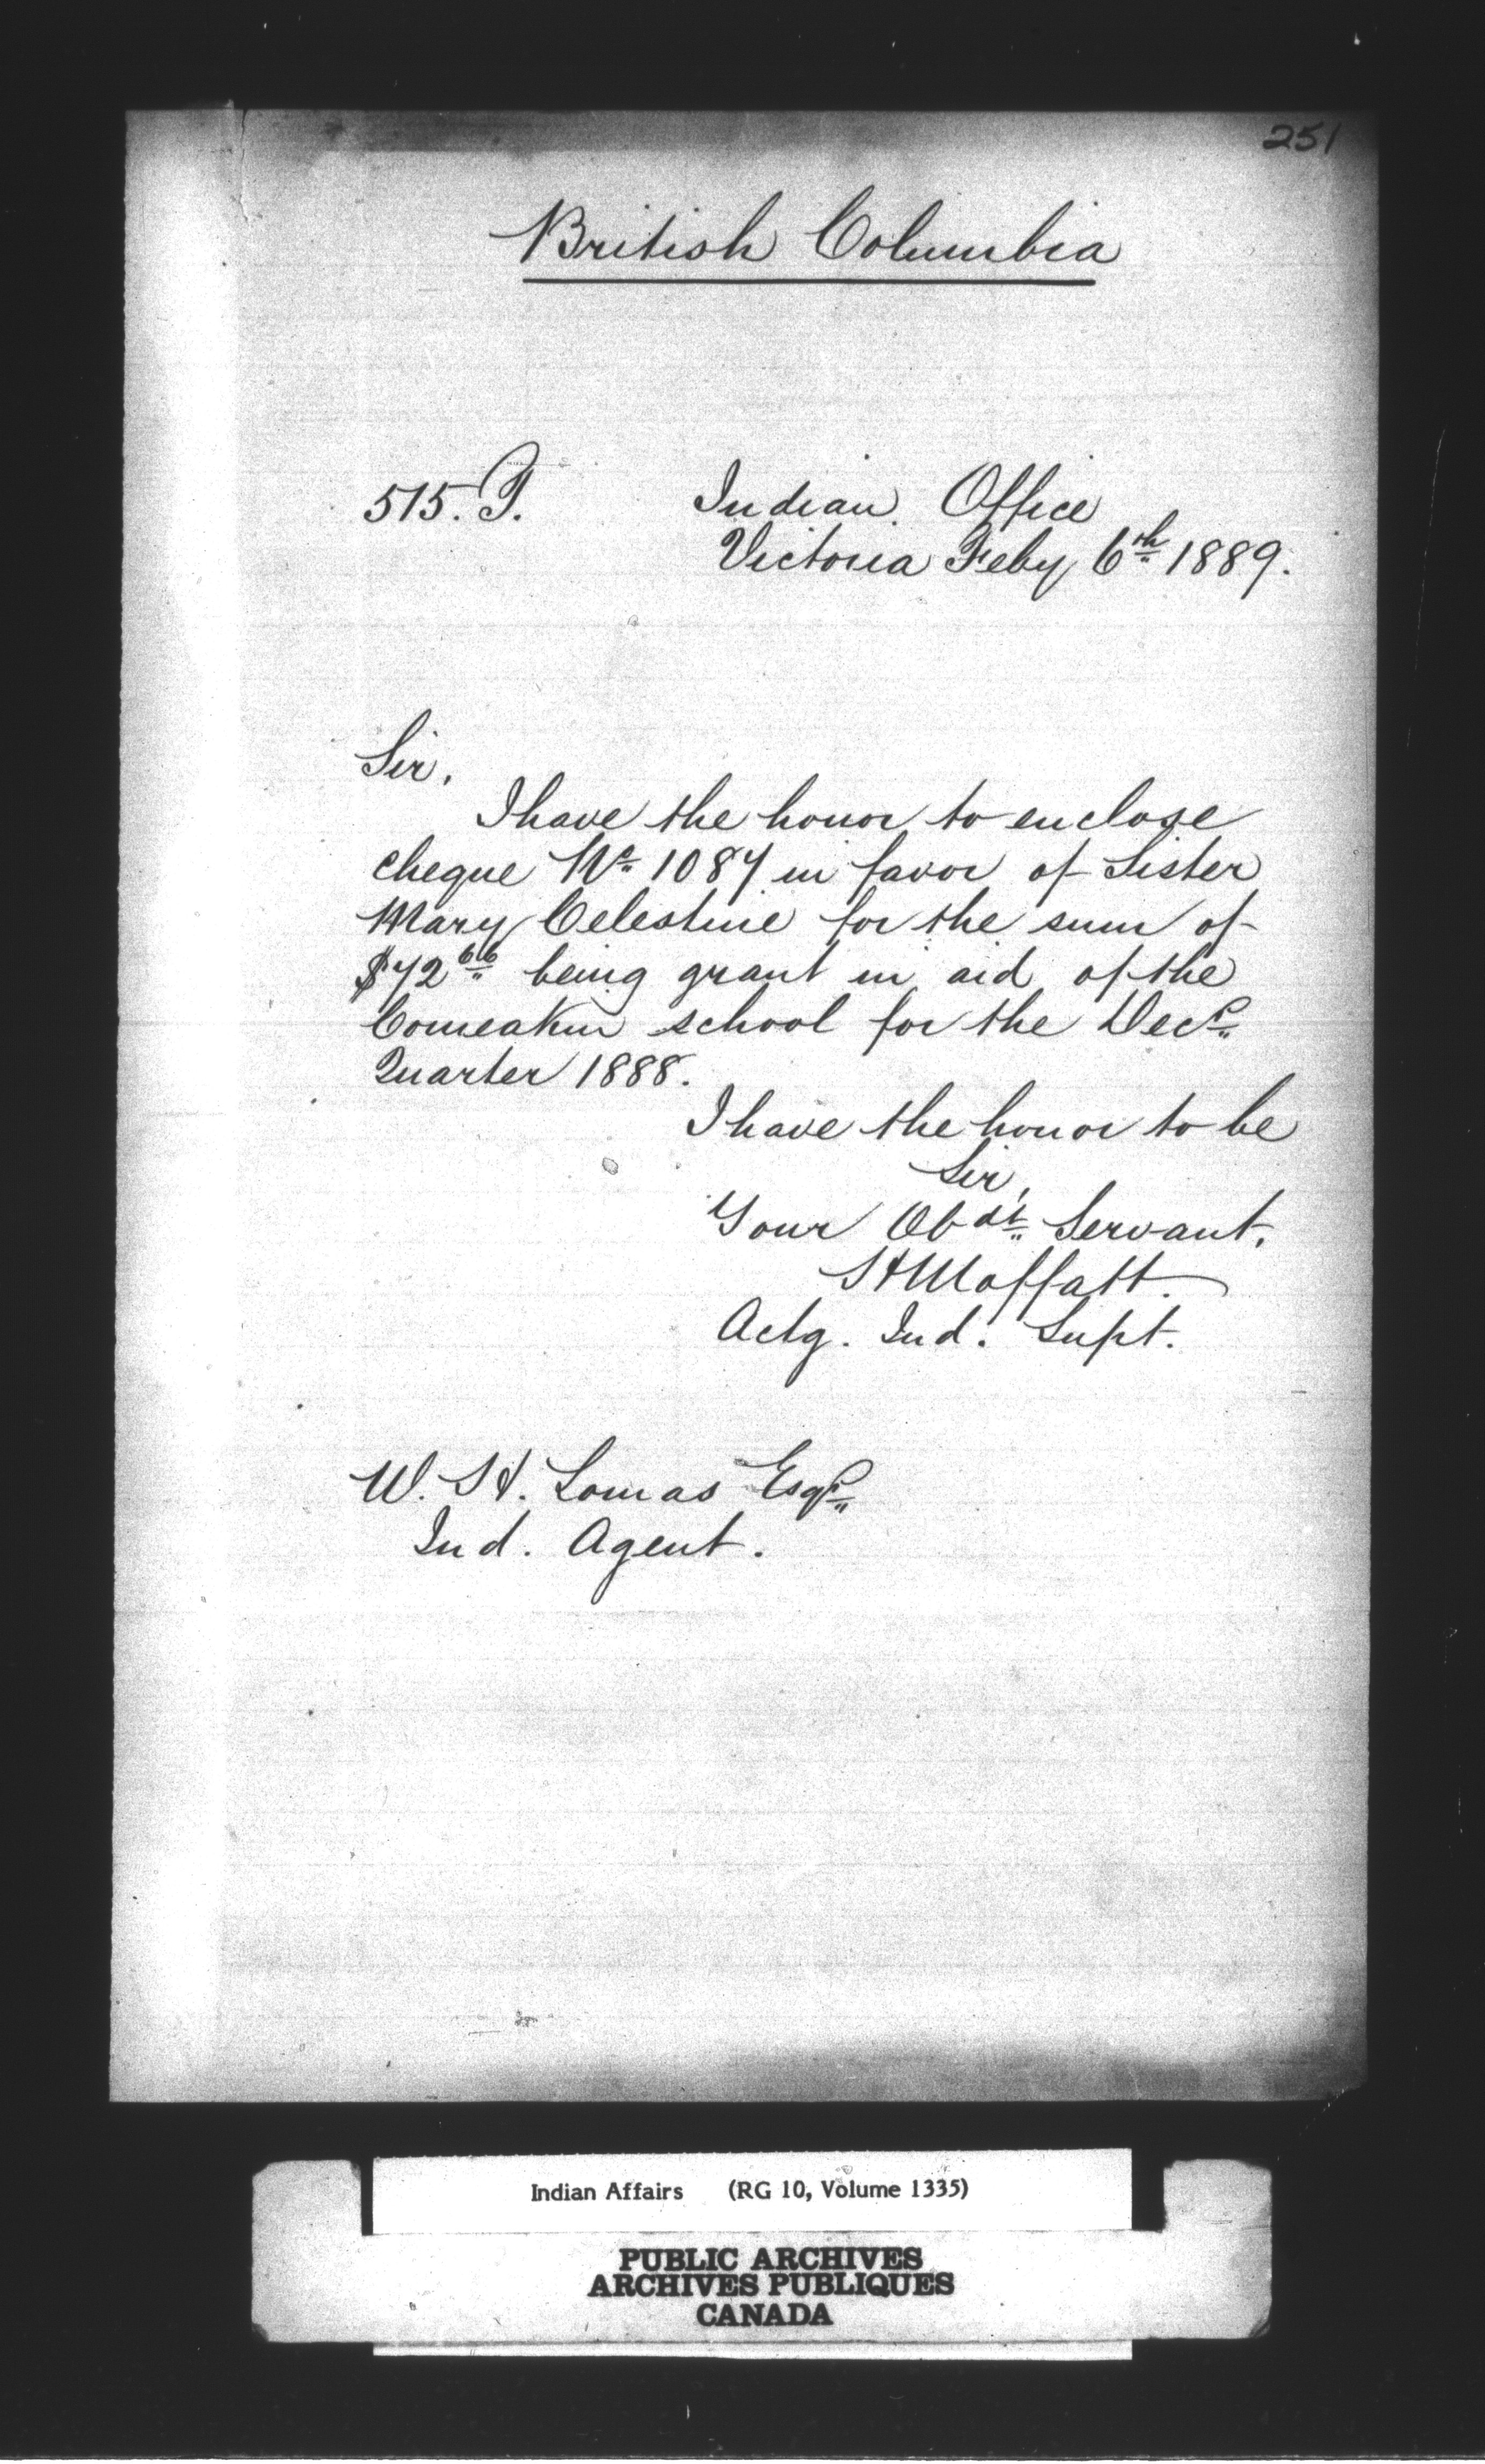 251
British Columbia
515. T.
Indian Office
Victoria Feby 6th 1889.
Sir,
I have the honor to enclose
cheque No 1087 in favor of Sister
Mary Celestine for the sum of
$72 66 being grant in aid of the
Comeakin school for the Decr
Quarter 1888.
I have the honor to be
Sir,
Your Obdt Servant,
H Moffatt.
Actg. Ind. Supt.
W. H. Lomas Esqr
Ind. Agent.
Indian Affairs (RG 10, Volume 1335)
PUBLIC ARCHIVES
ARCHIVES PUBLIQUES
CANADA